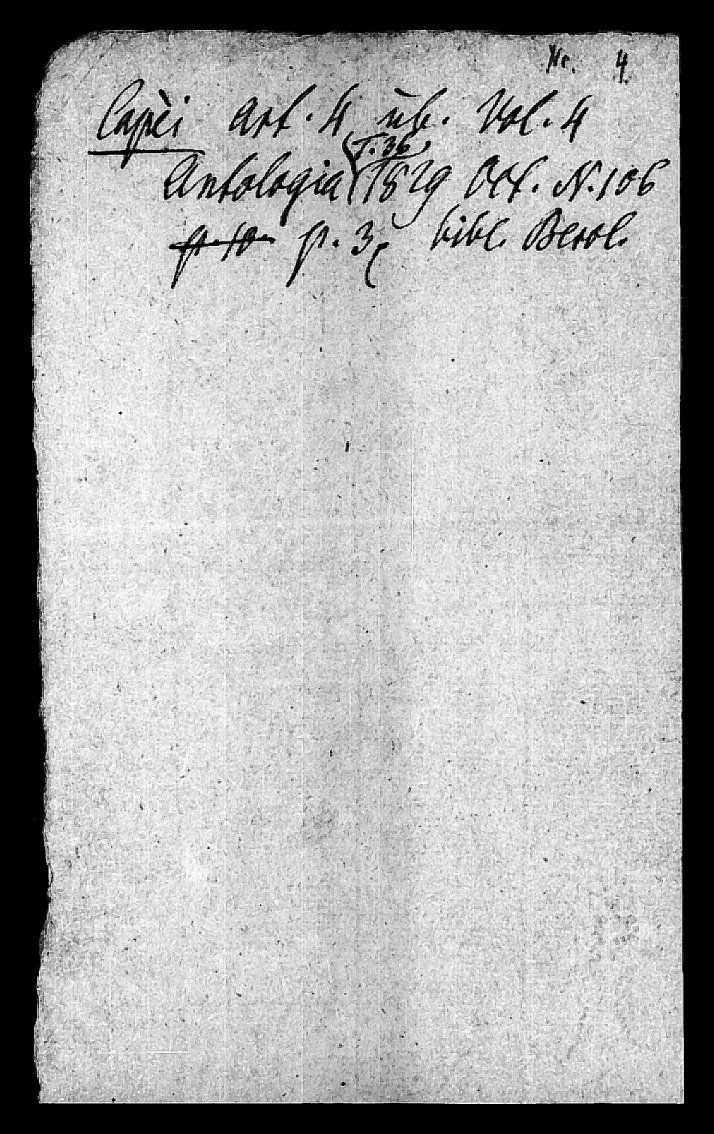 Nr. 4
Capei art. 4 üb. Vol. 4
Antologia (T. 36) 1829 Oct. N. 106
p. 10. p. 3, bibl. Berol.